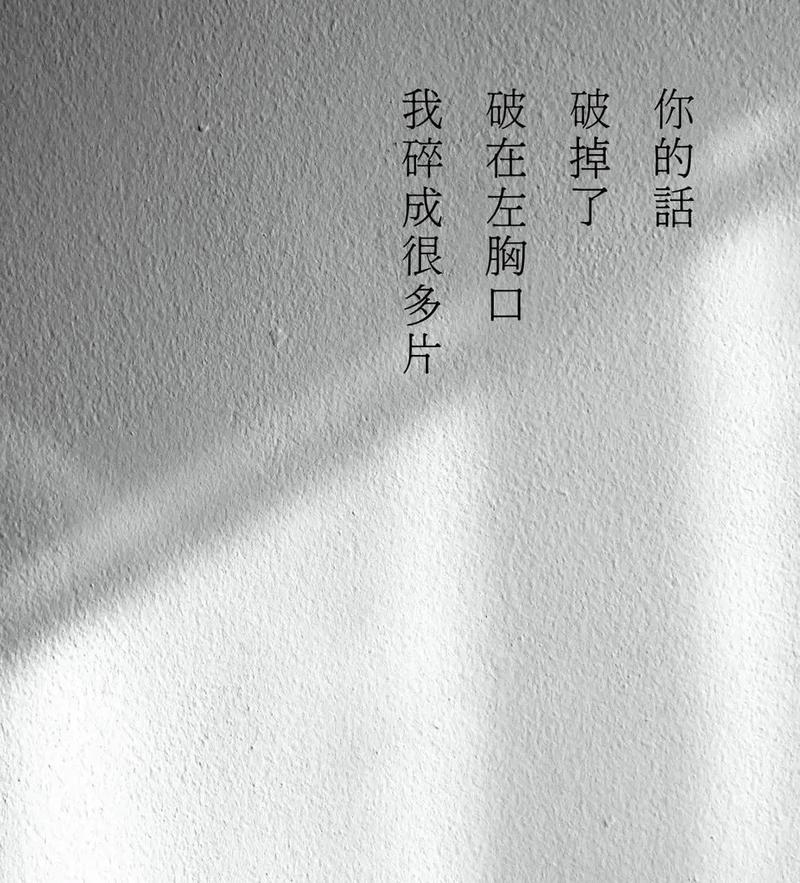 你的話
破掉了
破在左胸口
我碎成很多片